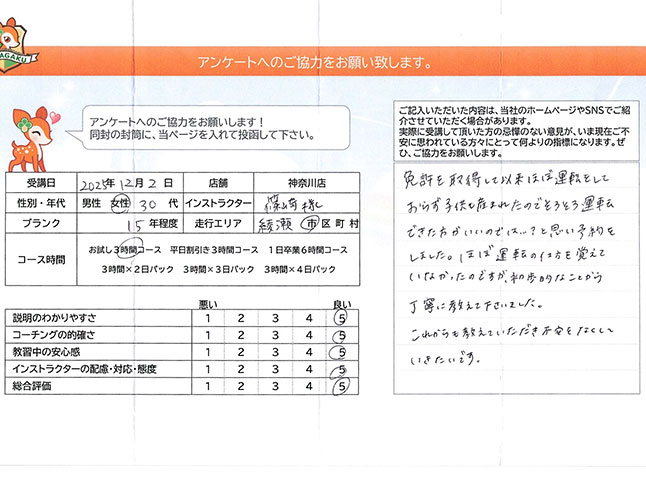 AGAKU
アンケートへのご協力をお願い致します。
アンケートへのご協力をお願いします！
同封の封筒に、当ページを入れて投函して下さい。
ご記入いただいた内容は、当社のホームページやSNSでご紹
介させていただく場合があります。
実際に受講して頂いた方の忌憚のない意見が、いま現在ご不
安に思われている方々にとって何よりの指標になります。ぜ
ひ、ご協力をお願いします。
受講日 2025年 12月 2日 店舗 神奈川店
性別・年代 男性 女性 30 代 インストラクター 篠崎 様
ブランク 15 年程度 走行エリア 綾瀬 市 区 町 村
コース時間 お試し3時間コース 平日割引き3時間コース 1日卒業6時間コース
3時間×2日パック 3時間×3日パック 3時間×4日パック
悪い 良い
説明のわかりやすさ 1 2 3 4 5
コーチングの的確さ 1 2 3 4 5
教習中の安心感 1 2 3 4 5
インストラクターの配慮・対応・態度 1 2 3 4 5
総合評価 1 2 3 4 5
免許を取得して以来ほぼ運転をして
おらず子供も産まれたのでそろそろ運転
できた方がいいのでは…?と思い予約を
しました。ほぼ運転の仕方を覚えて
いなかったのですが、初歩的なことから
丁寧に教えて下さいました。
これからも教えていただき不安をなくして
いきたいです。